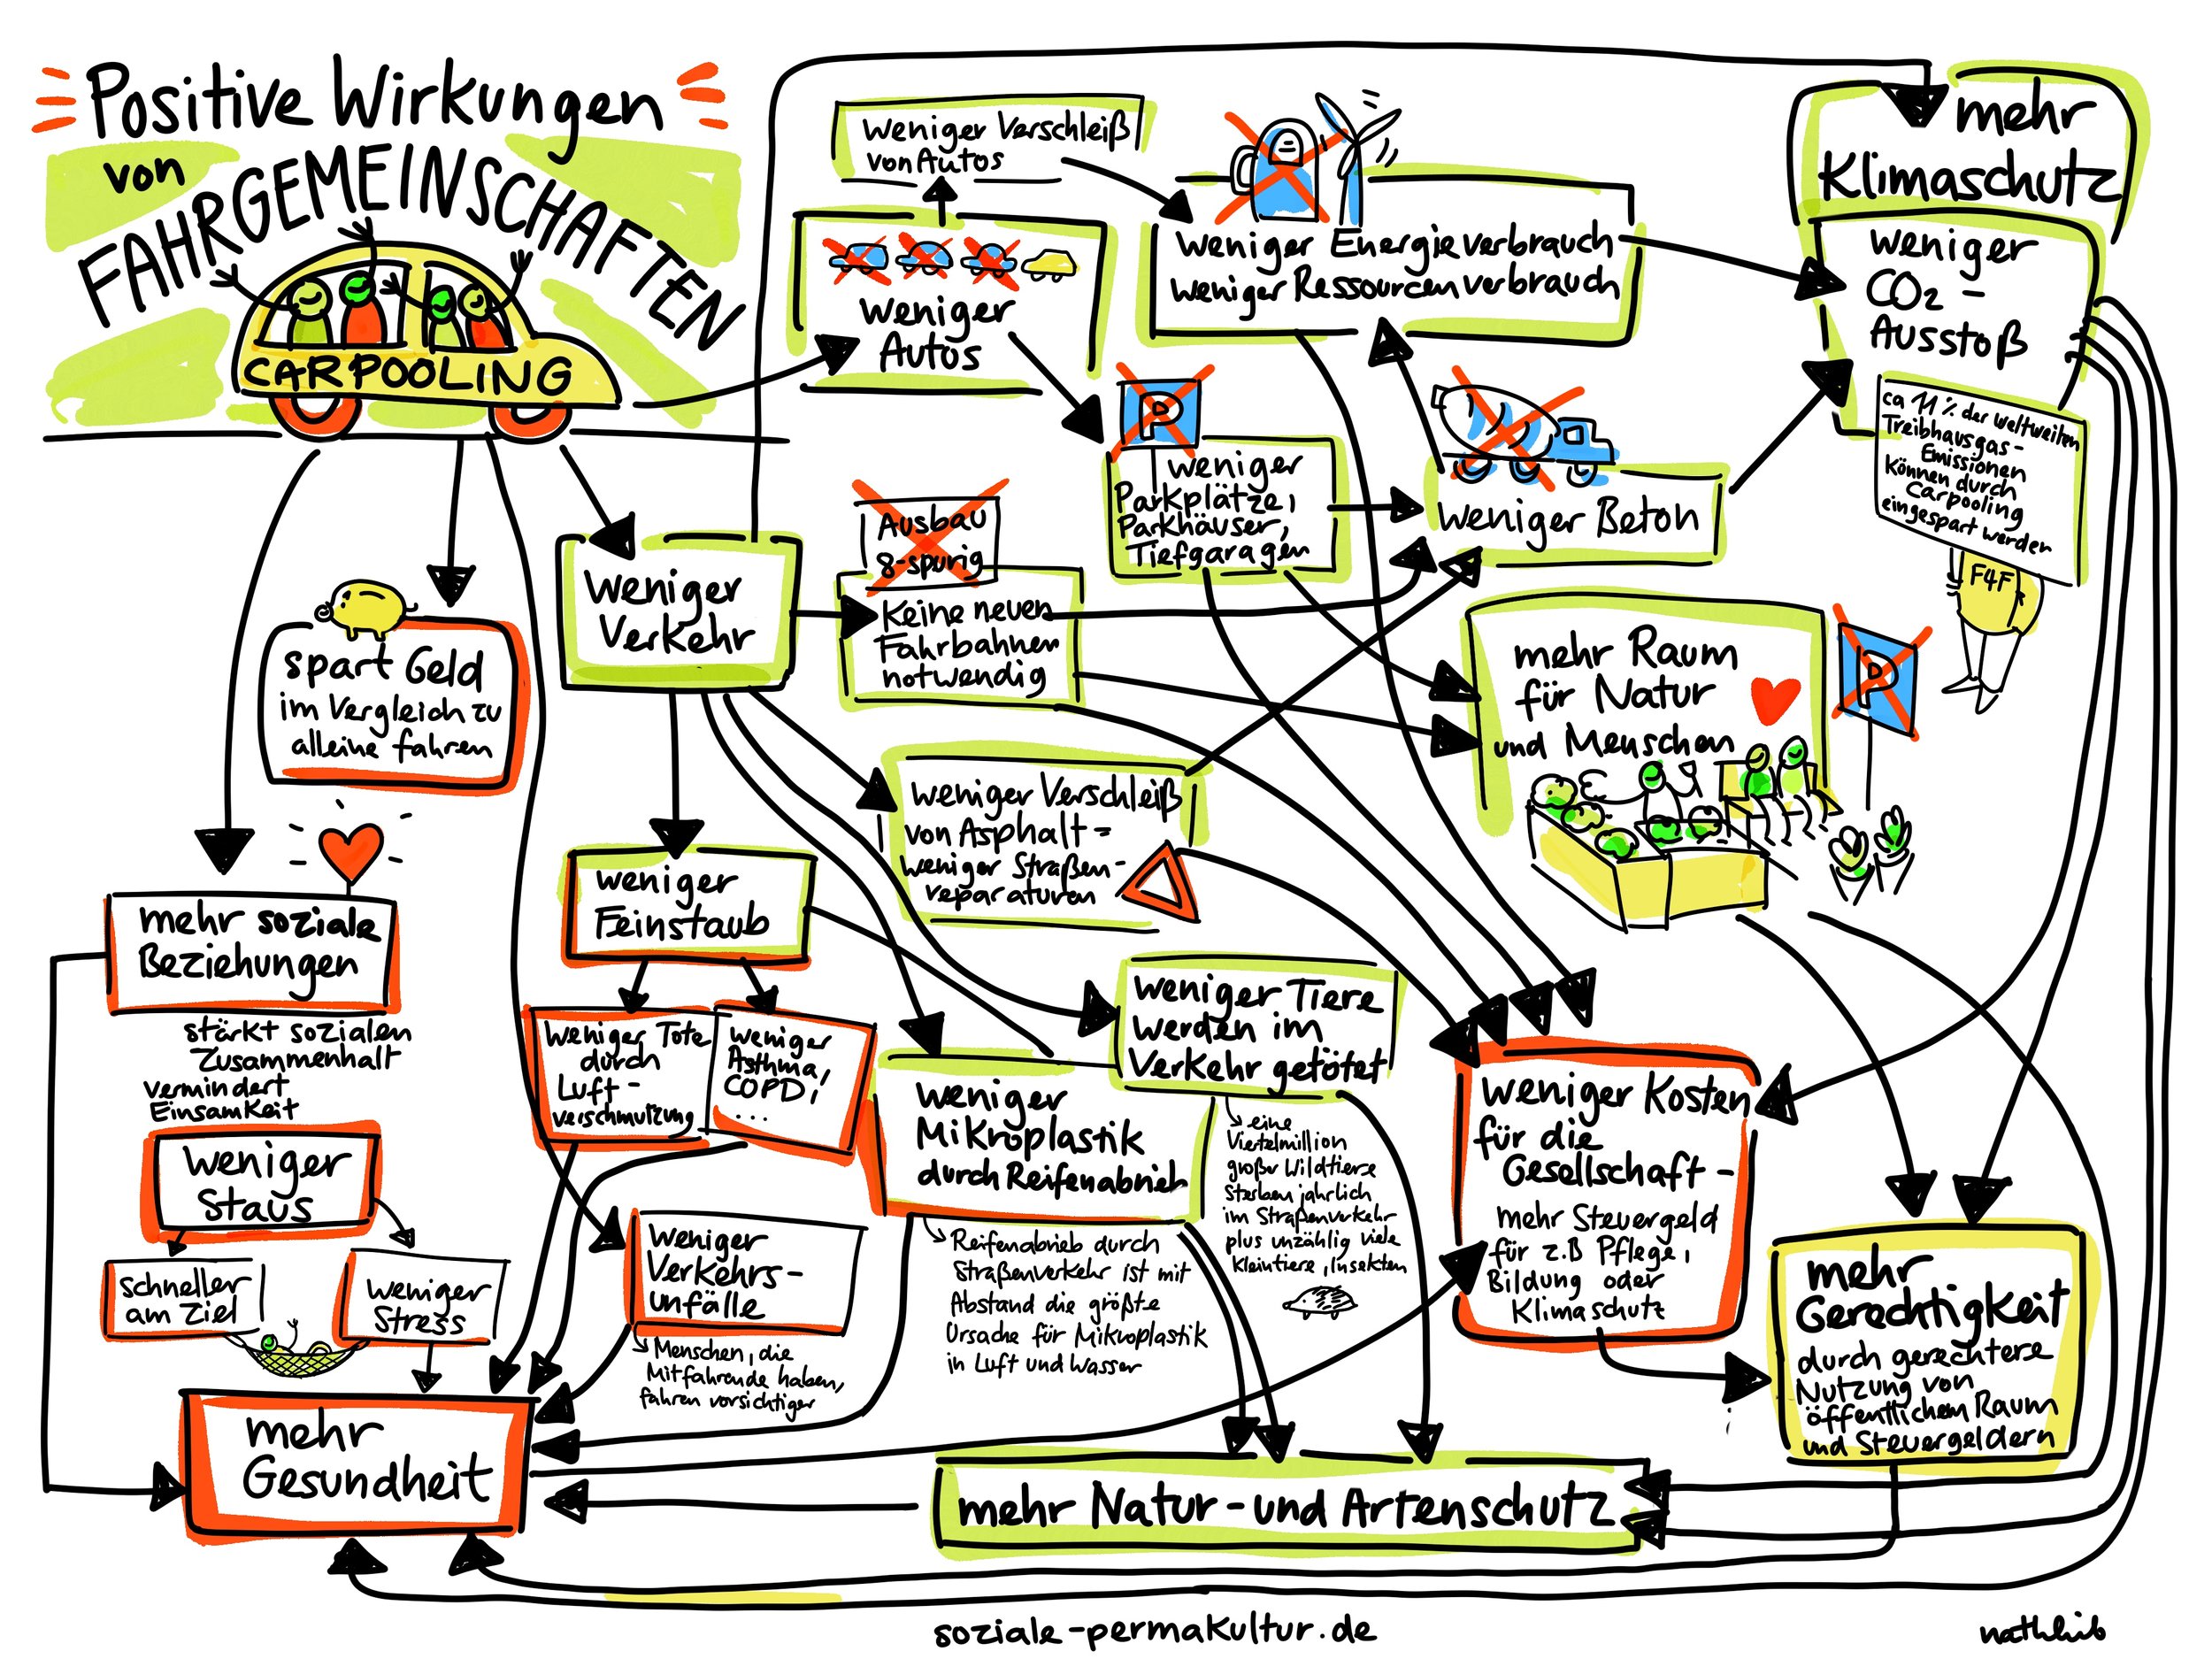 Positive Wirkungen
von
FAHRGEMEINSCHAFTEN
CARPOOLING
weniger Verschleiß
von Autos
weniger
Autos
weniger Energieverbrauch
weniger Ressourcenverbrauch
mehr
Klimaschutz
weniger
CO2-
Ausstoß
ca 11% der weltweiten
Treibhausgas-
Emissionen
können durch
Carpooling
eingespart werden
F4F
P
weniger
Parkplätze,
Parkhäuser,
Tiefgaragen
weniger Beton
Ausbau
8-spurig
Keine neuen
Fahrbahnen
notwendig
weniger
Verkehr
spart Geld
im Vergleich zu
alleine fahren
mehr Raum
für Natur
und Menschen
P
weniger Verschleiß
von Asphalt=
weniger Straßen-
reparaturen
weniger
Feinstaub
mehr soziale
Beziehungen
stärkt sozialen
Zusammenhalt
vermindert
Einsamkeit
weniger Tote
durch
Luft-
verschmutzung
weniger
Asthma,
COPD,
...
weniger
Mikroplastik
durch Reifenabrieb
Reifenabrieb durch
Straßenverkehr ist mit
Abstand die größte
Ursache für Mikroplastik
in Luft und Wasser
weniger Tiere
werden im
Verkehr getötet
eine
Viertelmillion
großer Wildtiere
sterben jährlich
im Straßenverkehr
plus unzählig viele
Kleintiere, Insekten
weniger Kosten
für die
Gesellschaft-
mehr Steuergeld
für z.B Pflege,
Bildung oder
Klimaschutz
weniger
Staus
schneller
am Ziel
weniger
Stress
weniger
Verkehrs-
unfälle
Menschen, die
Mitfahrende haben,
fahren vorsichtiger
mehr
Gerechtigkeit
durch gerechtere
Nutzung von
öffentlichem Raum
und Steuergeldern
mehr
Gesundheit
mehr Natur-und Artenschutz
soziale-permakultur.de